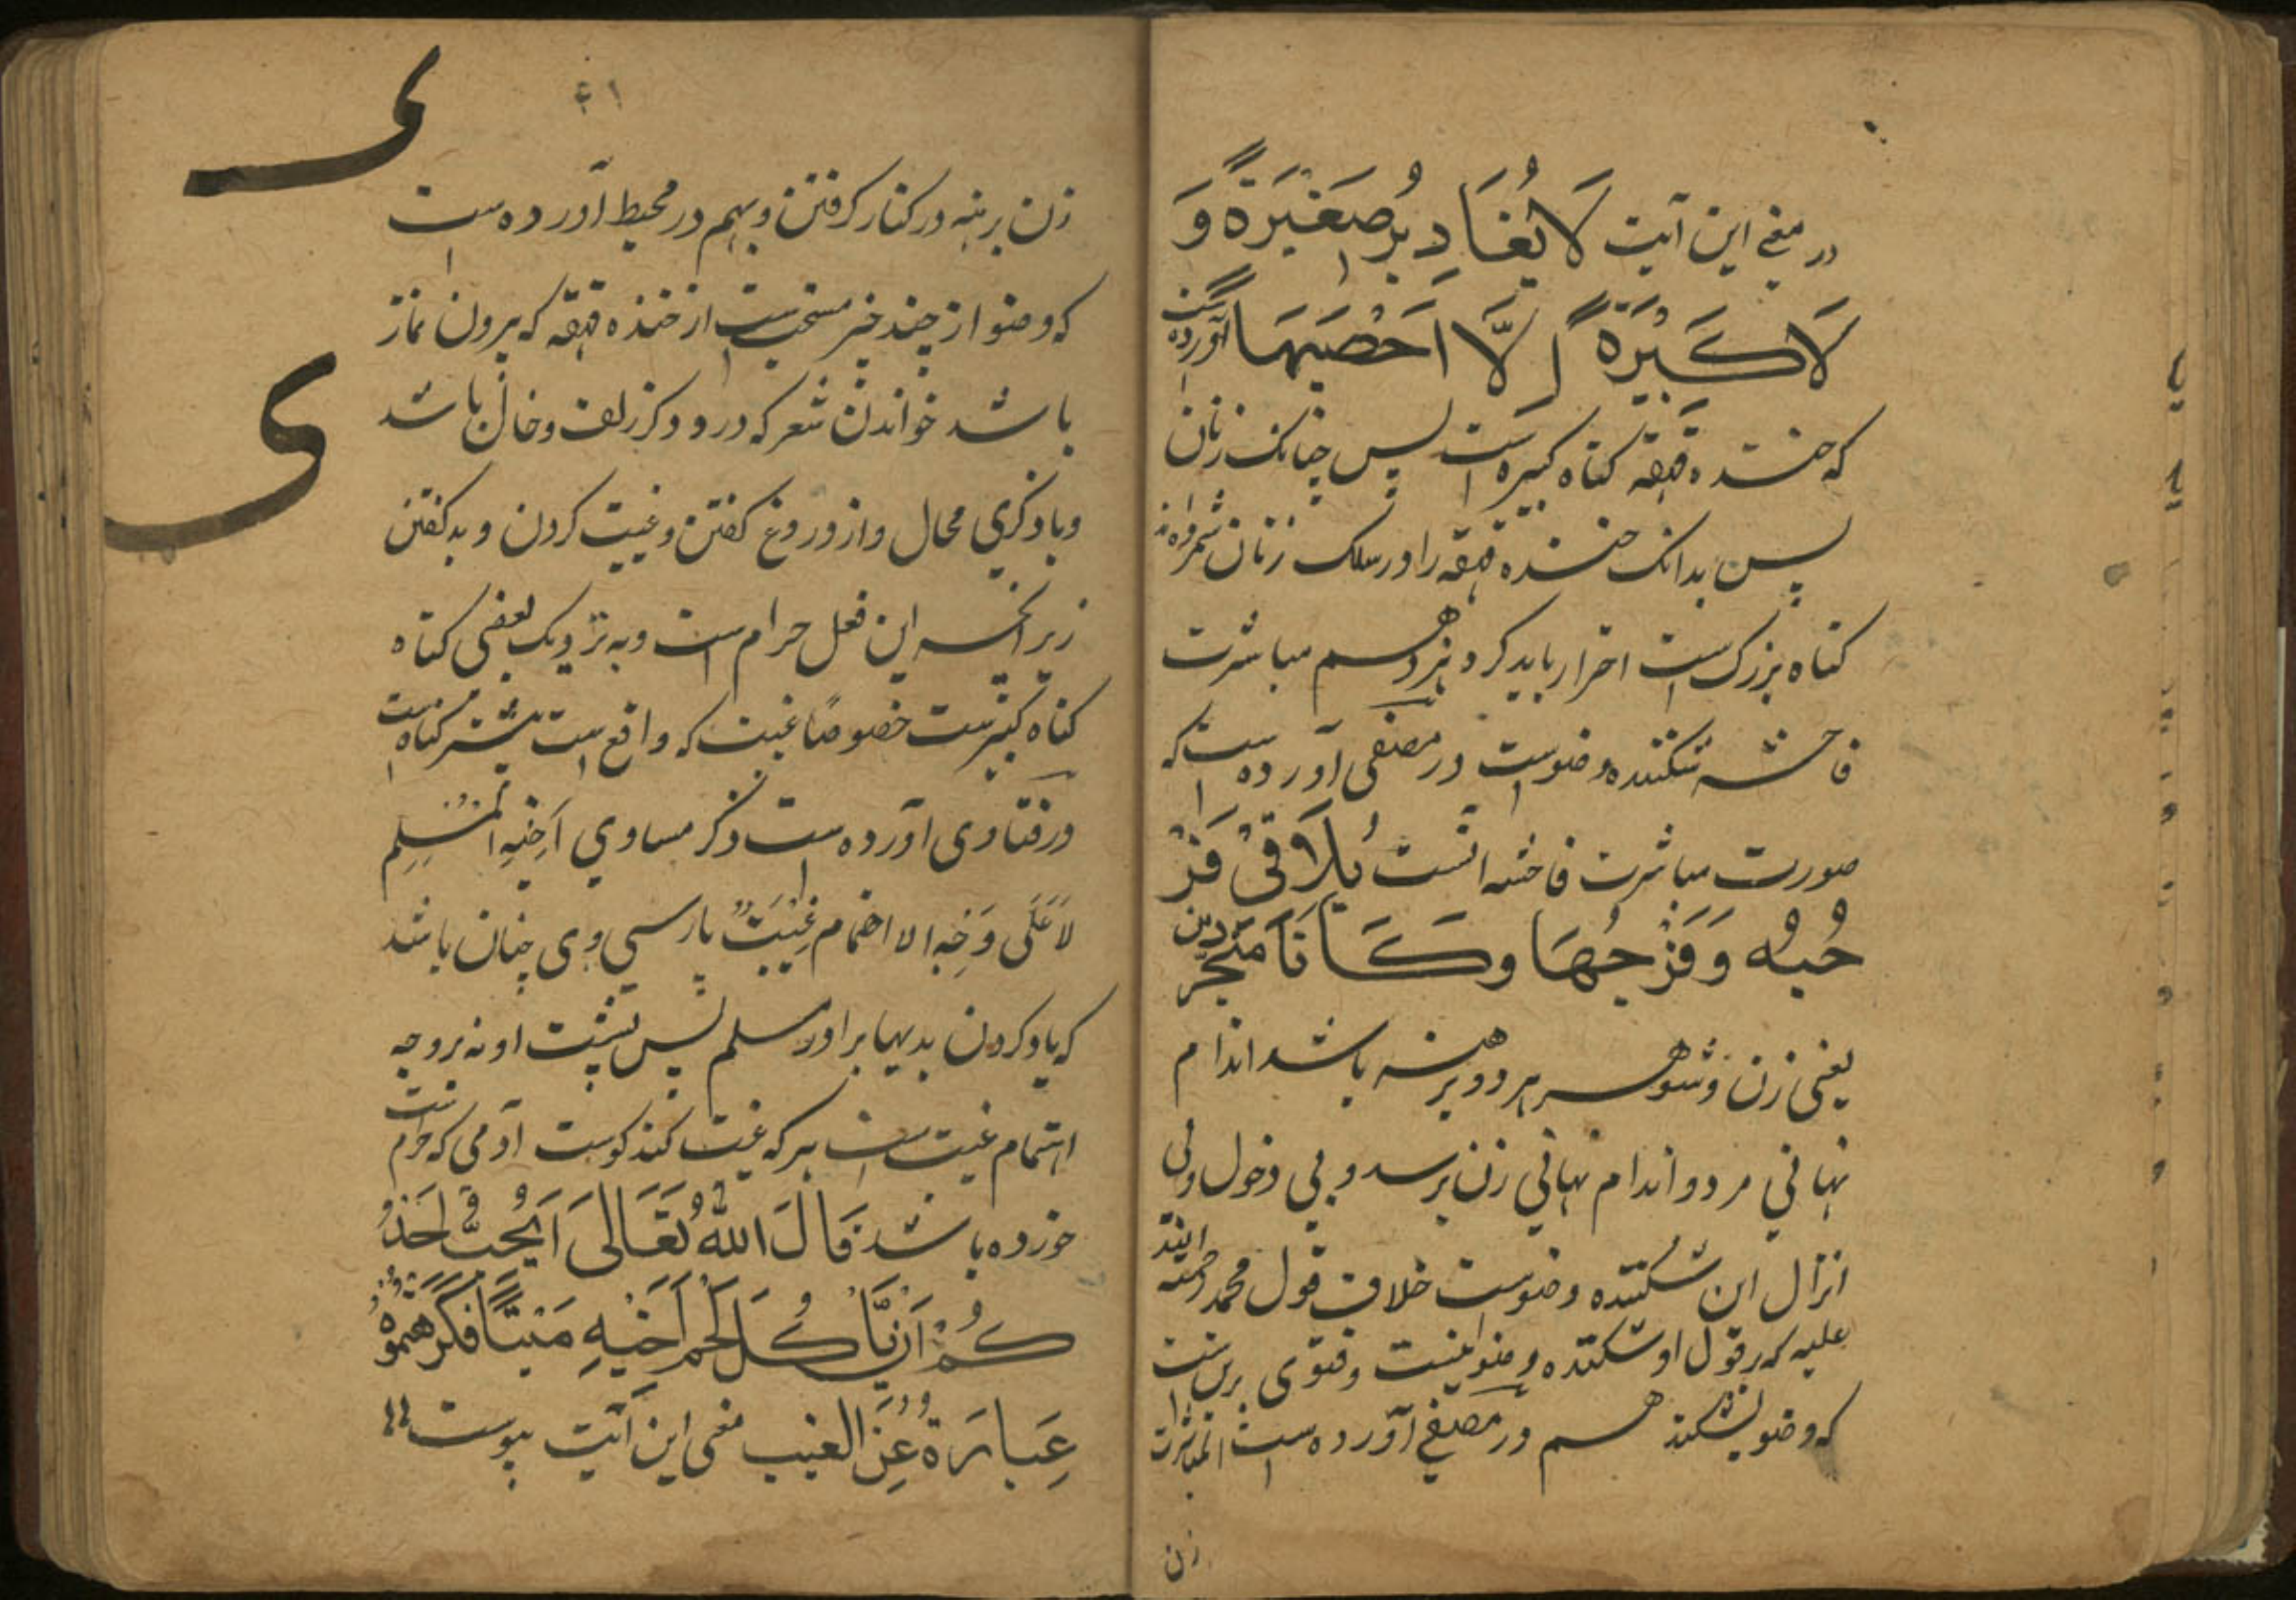 در معنی این آیت لَا یُغَادِرُ صَغِیْرَةً وَ
لَا کَبِیْرَةً اِلَّا اَحْصَیهَا آورده است
که خنده قهقه کناه کبیره است پس چنانک زنان
پس بدانک خنده قهقه را در سلک زنان شمرده‌اند
کناه بزرک است احتراز باید کرد نیز هم مباشرت
فاحشه شکننده وضو است در مصفی آورده است که
صورت مباشرت فاحشه آنست یُلَاقِیْ فَرْ
جُهُ وَفَرْجُهَا وَکَانَا مُتَجَرِّدَیْن
یعنی زن و شوهر هر دو برهنه باشد اندام
نهانی مرد و اندام نهانی زن برسد و بی دخول و بی
انزال این شکننده وضو است خلاف قول محمد رحمة الله
علیه که بر قول او شکننده وضو نیست و فتوی برین است
که وضو بشکند هم در مصفی آورده است المباشرت
زن
۴۱
زن برهنه در کنار کرفتن و بهم در محیط آورده است
که وضو از چند چیز مستحب است از خنده قهقه که بیرون نماز
باشد خواندن شعر که درو ذکر زلف و خال باشد
و یا ذکری محال و از دروغ کفتن و غیبت کردن و بد کفتن
زیرا که این فعل حرام است و به نزدیک بعضی کناه
کناه کبیر است خصوصًا غیبت که واقع است بیشتر کناه است
در فتاوی آورده است ذکر مساوي اَخِیْهِ الْمُسْلِمِ
لَا عَلَی وَجْهِ الا اهتمام غِیْبَتٌ پارسی وی چنان باشد
که یاد کردن بدیها برادر مسلم پس پشت او نه بر وجه
اهتمام غیبت است هر که غیبت کند کوشت آدمی که حرام است
خورده باشد قَالَ اللهُ تَعَالَی اَیُحِبُّ اَحَدُ
کُمْ اَنْ یَّاکُلَ لَحْمَ اَخِیْهِ مَیْتًا فَکَرِهْتُمُوْهُ
عِبَارَةٌ عَنِ الغیب معنی این آیت پیوست